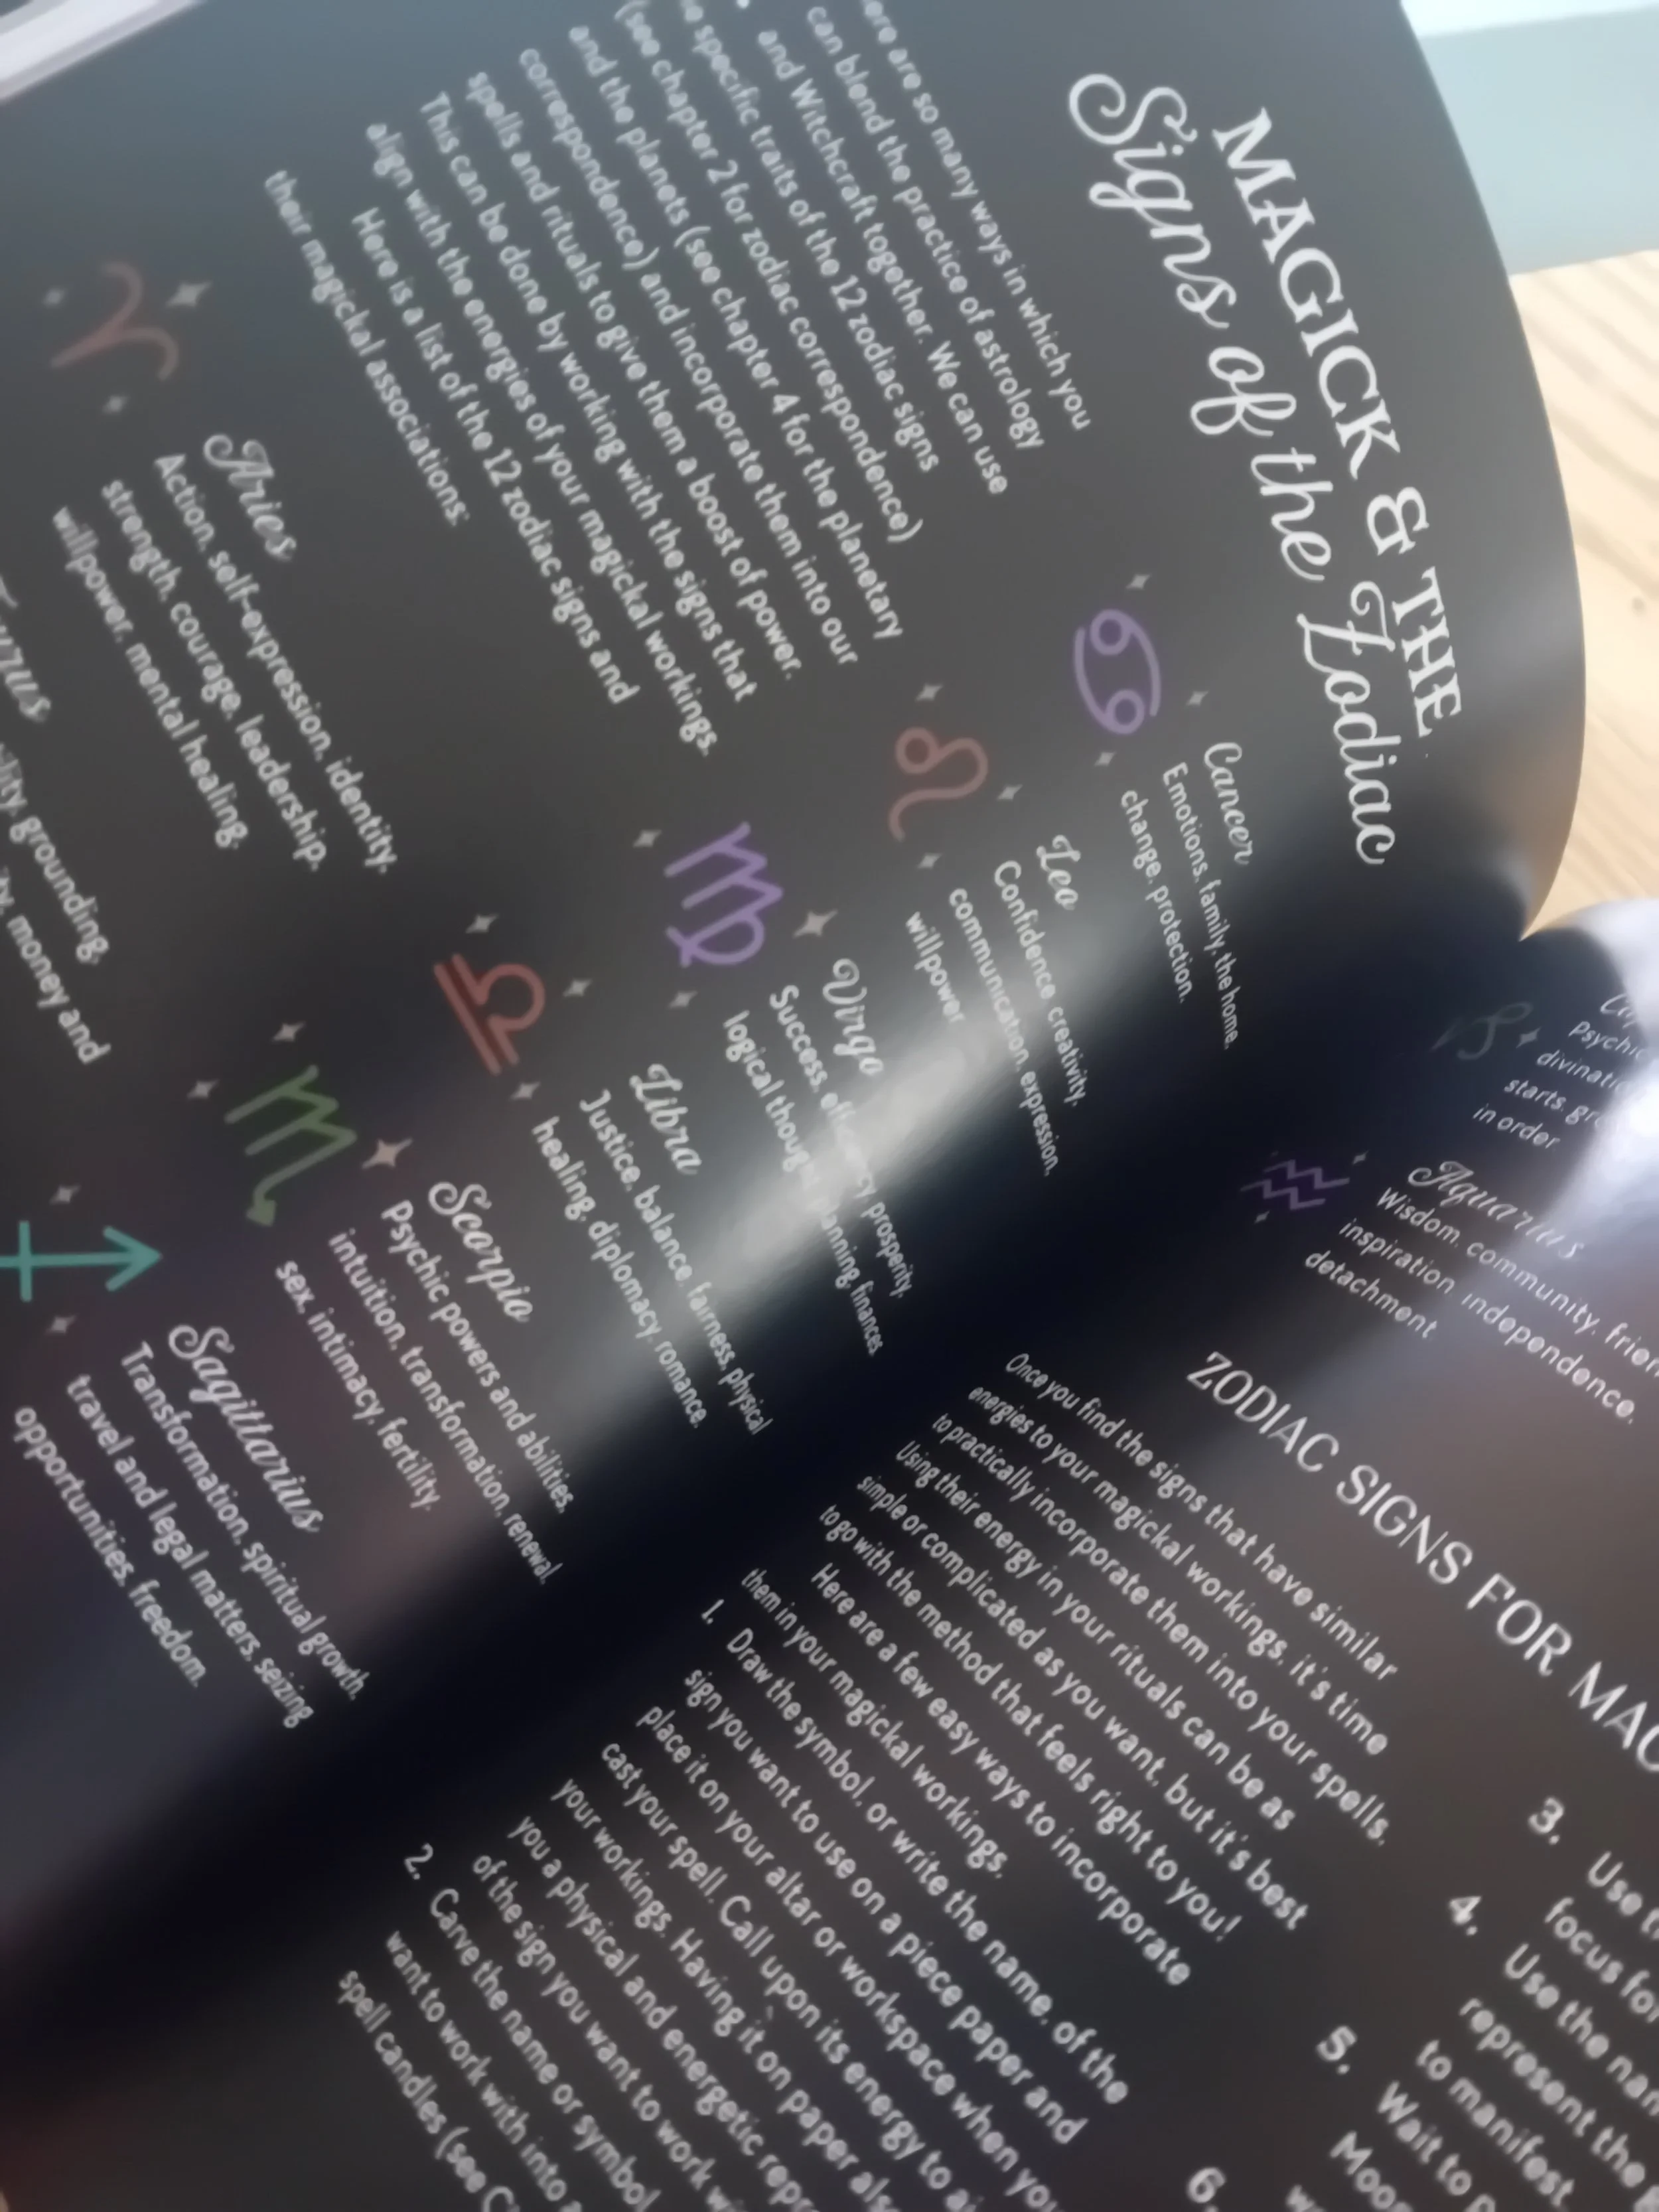 MAGICK & THE
Signs of the Zodiac
ere are so many ways in which you
can blend the practice of astrology
and Witchcraft together. We can use
specific traits of the 12 zodiac signs
(see chapter 2 for zodiac correspondence)
and the planets (see chapter 4 for the planetary
correspondence) and incorporate them into our
spells and rituals to give them a boost of power.
This can be done by working with the signs that
align with the energies of your magickal workings.
Here is a list of the 12 zodiac signs and
their magickal associations:
Aries
Action, self-expression, identity,
strength, courage, leadership,
willpower, mental healing.
grounding,
money and
Cancer
Emotions, family, the home,
change, protection.
Leo
Confidence, creativity,
communication, expression,
willpower
Virgo
Success, efficiency prosperity,
logical thought, planning, finances.
Libra
Justice, balance, fairness, physical
healing, diplomacy, romance.
Scorpio
Psychic powers and abilities,
intuition, transformation, renewal,
sex, intimacy, fertility.
Sagittarius
Transformation, spiritual growth,
travel and legal matters, seizing
opportunities, freedom.
Psychic
starts,
in order
Aquarius
Wisdom, community,
inspiration independence,
detachment
ZODIAC SIGNS FOR
Once you find the signs that have similar
energies to your magickal workings, it's time
to practically incorporate them into your spells.
Using their energy in your rituals can be as
simple or complicated as you want, but it's best
to go with the method that feels right to you!
Here are a few easy ways to incorporate
them in your magickal workings.
1. Draw the symbol, or write the name, of the
sign you want to use on a piece paper and
place it on your altar or workspace when you
cast your spell. Call upon its energy to
your workings. Having it on paper
you a physical and energetic
of the sign you want to work
2. Carve the name or symbol
want to work with into
spell candles (see
3. Use
focus for
4. Use the
represent the
to manifest
5. Wait to
6.